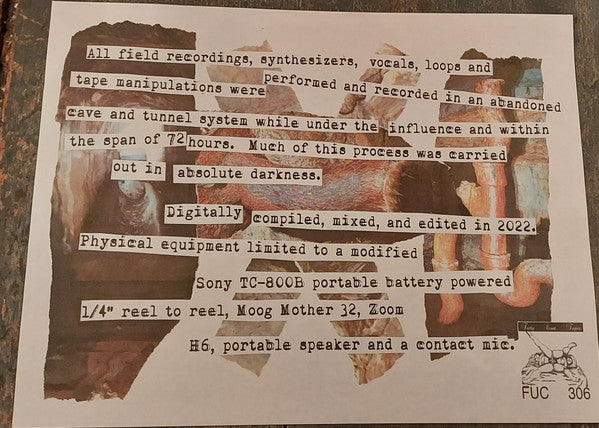 All field recordings, synthesizers, vocals, loops and
tape manipulations were performed and recorded in an abandoned
cave and tunnel system while under the influence and within
the span of 72 hours. Much of this process was carried
out in absolute darkness.
Digitally compiled, mixed, and edited in 2022.
Physical equipment limited to a modified
Sony TC-800B portable battery powered
1/4" reel to reel, Moog Mother 32, Zoom
H6, portable speaker and a contact mic.
FUC 306